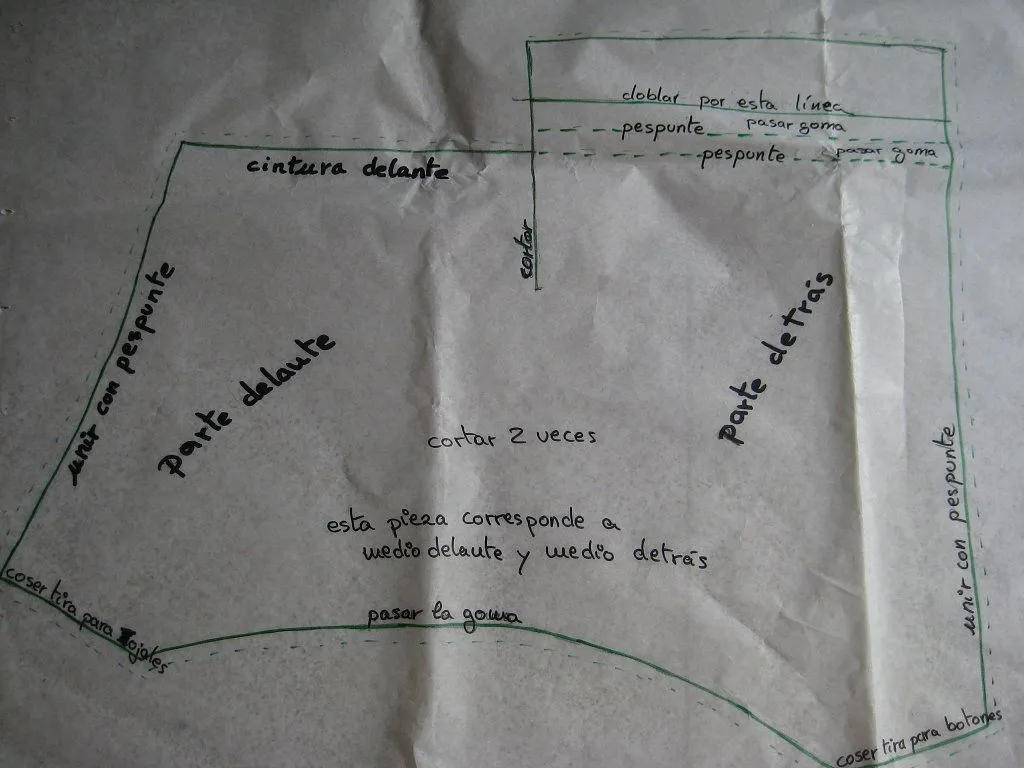 doblar por esta línea
pespunte pasar goma
pespunte pasar goma
cintura delante
cortar
unir con pespunte
parte delante
parte detrás
cortar 2 veces
esta pieza corresponde a
medio delante y medio detrás
unir con pespunte
pasar la goma
coser tira para ojales
coser tira para botones